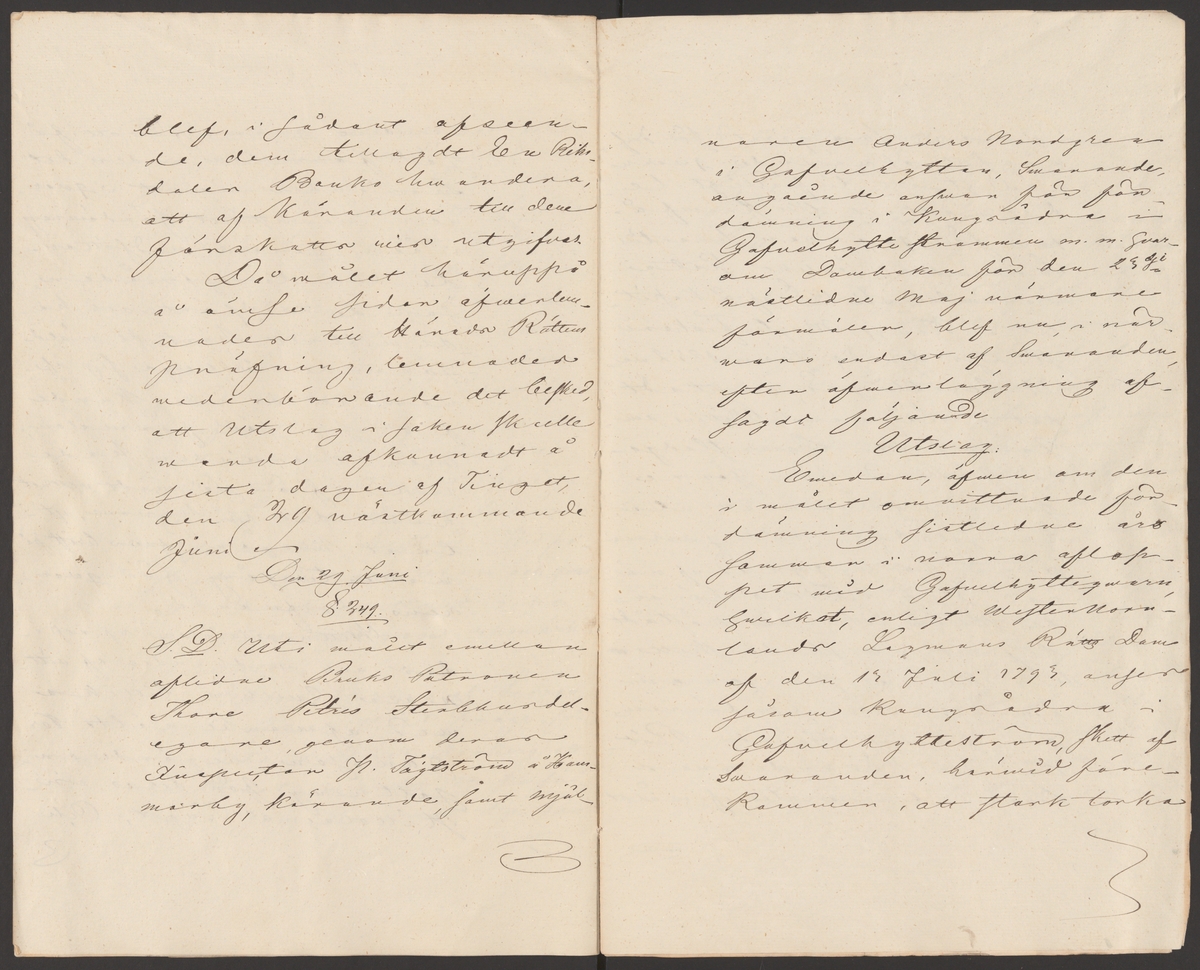 blef, i sådant afseen-
de, dem tillagdt En Riks-
daler Banko hwardera,
att af Käranden till dem
förskottsvis utgifvas.
Då målet häruppå
å ömse sidor öfwerlem-
nades till Härads Rättens
pröfning, lemnades
wederbörande det besked,
att Utslag i saken skulle
warda afkunnadt å
sista dagen af Tinget,
den 29 nästkommande
Juni
Den 29 Juni
§ 249.
S. D. Uti målet emellan
aflidne Bruks Patronen
Thore Petrés Sterbhusdel-
egare, genom deras
Inspector P. Tägtström å Ham-
marby, kärande, samt Mjöl-
naren Anders Nordgren
i Gafvelhyttan, Swarande,
angående answar för för-
dämning i Kungsådra i
Gafvelhytte Strömmen m. m. hvar-
om Domboken för den 23 
nästlidne Maj närmare
förmäler, blef nu, i när-
waro endast af Swaranden,
efter öfwerläggning af-
sagdt följande
Utslag.
Emedan, äfwen om den
i målet omvittnade för-
dämning sistledne års
sommar i norra aflop-
pet wid Gafvelhytteqwarn,
hwilket, enligt Westernorr-
lands Lagmans Rätts Dom
af den 13 Juli 1793, anses
såsom Kungsådra i
Gafvelhytteström, skett af
Swaranden, härwid före-
kommer, att stark torka